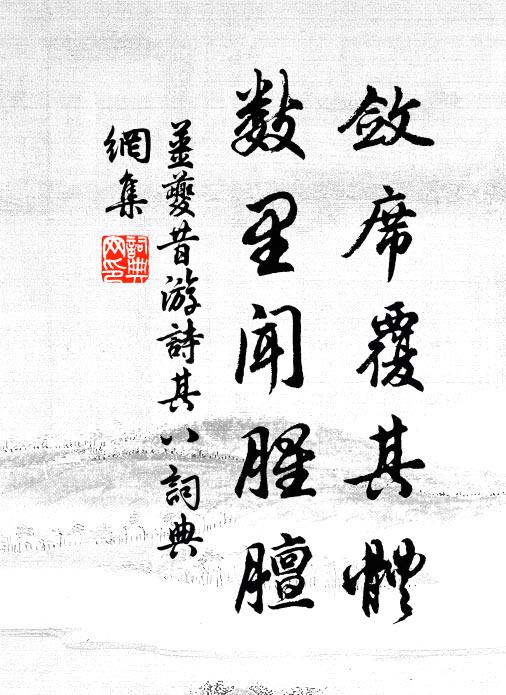 斂席覆其體
數里聞腥膻
姜夔昔游詩其八詞典
網集
詞典網印